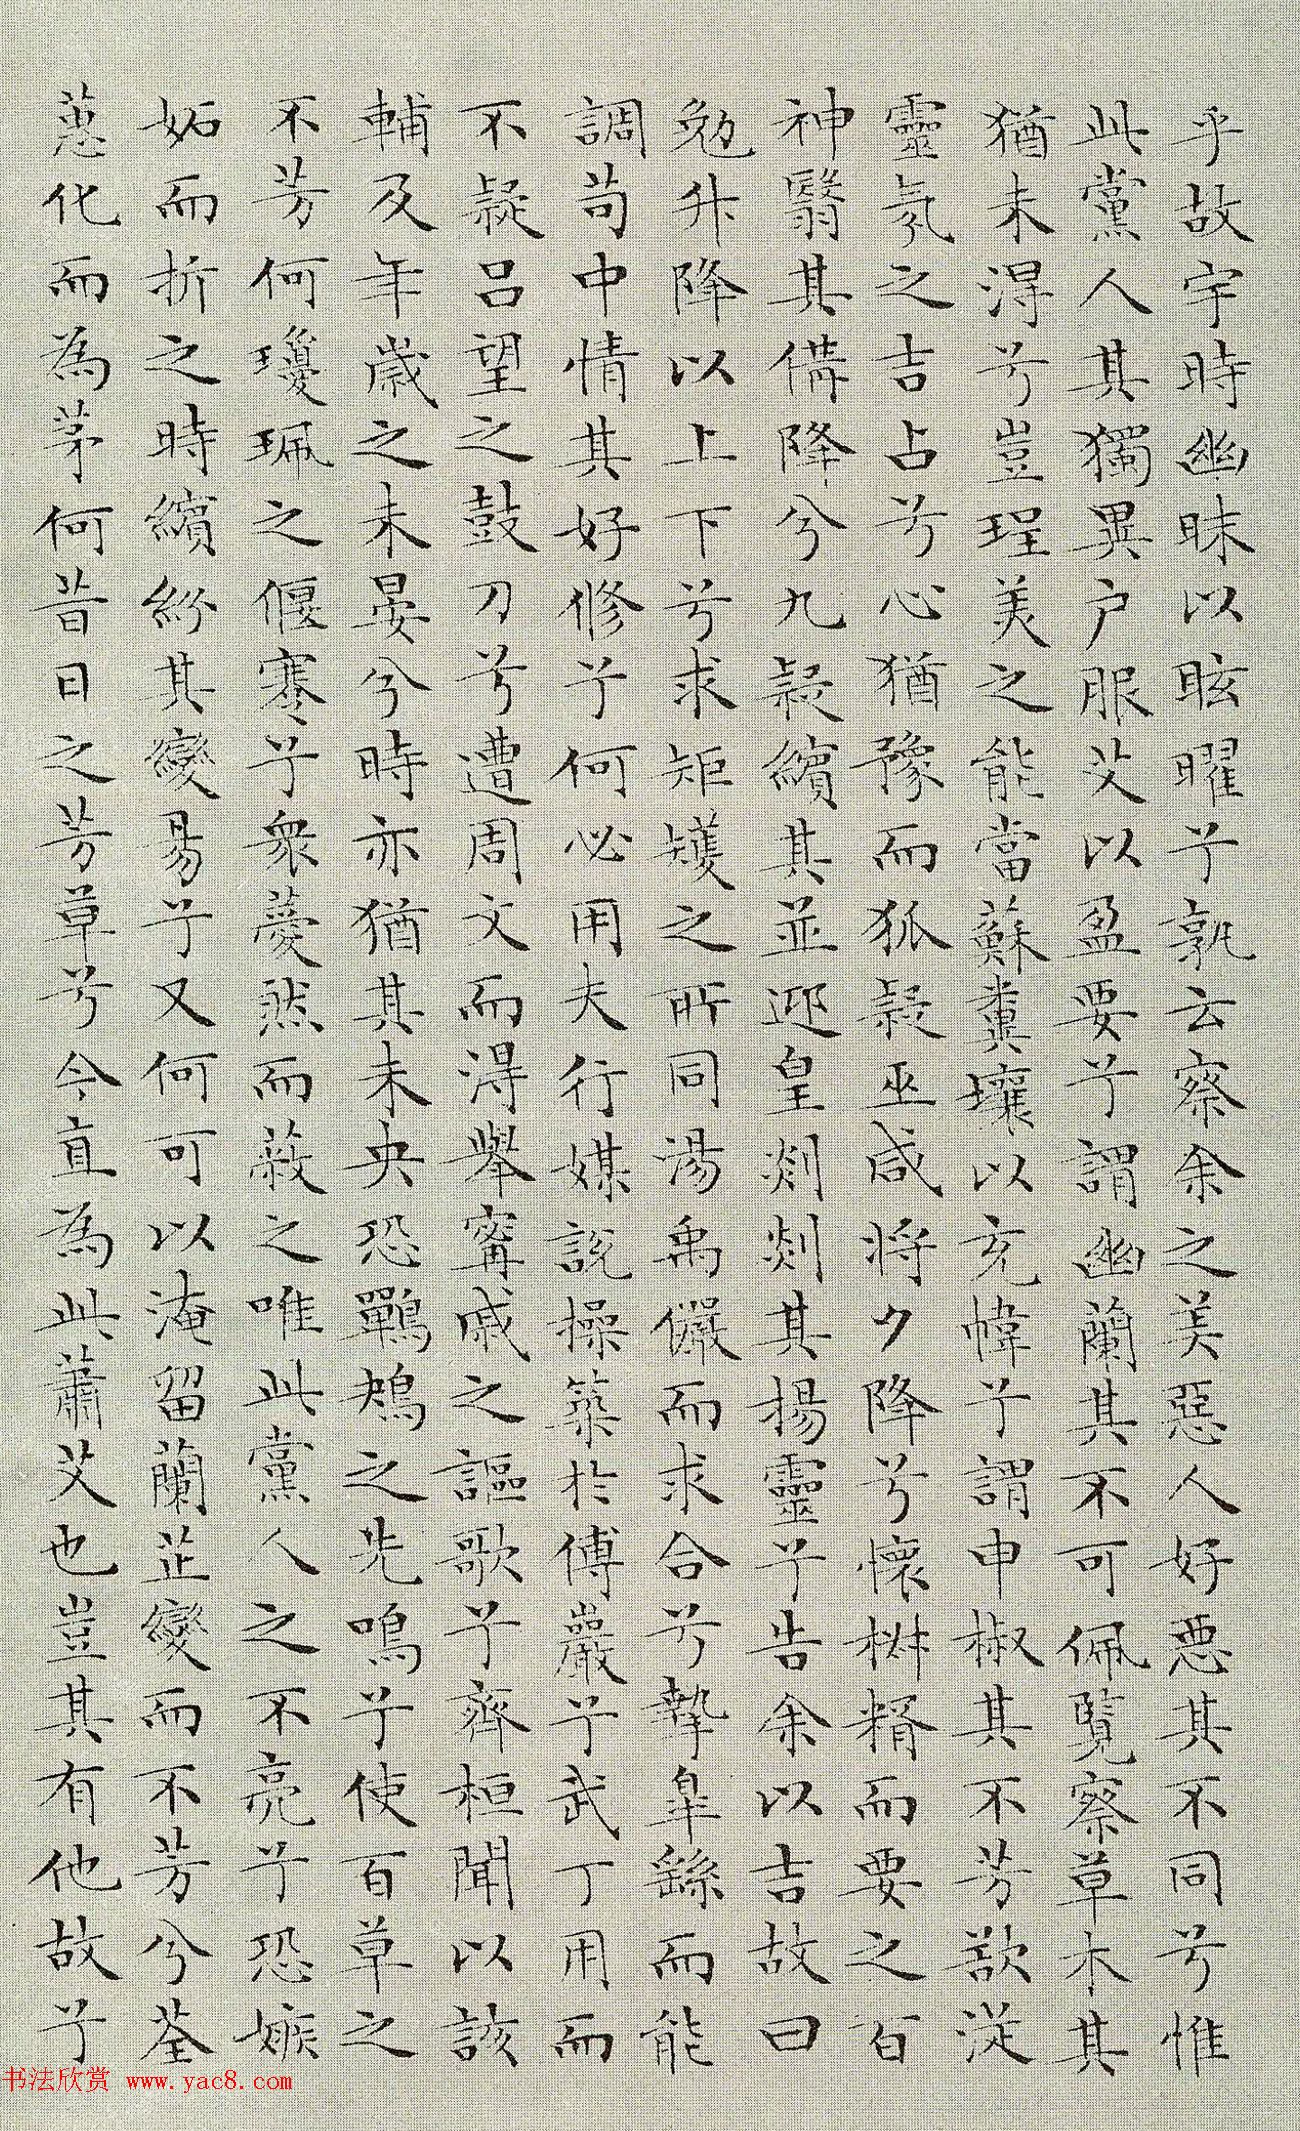 乎故宇時幽昧以眩曜兮孰云察余之美惡人好惡其不同兮惟
此黨人其獨異户服艾以盈要兮謂幽蘭其不可佩覽察草木其
猶未淂兮豈珵美之能當蘇糞壤以充幃兮謂申椒其不芳欲従
靈氛之吉占兮心猶豫而狐疑巫咸将夕降兮懷椒糈而要之百
神翳其偹降兮九疑繽其並迎皇剡剡其揚靈兮告余以吉故曰
勉升降以上下兮求矩矱之所同湯禹儼而求合兮摯皋繇而能
調苟中情其好修兮何必用夫行媒説操築於傅巖兮武丁用而
不疑吕望之鼓刀兮遭周文而淂舉甯戚之謳歌兮齊桓聞以該
輔及年歲之未晏兮時亦猶其未央恐鷤鴂之先鳴兮使百草之
不芳何瓊珮之偃蹇兮衆薆然而蔽之唯此黨人之不亮兮恐嫉
妬而折之時繽紛其變易兮又何可以淹留蘭芷變而不芳兮荃
蕙化而為茅何昔日之芳草兮今直為此蕭艾也豈其有他故兮
书法欣赏 www.yac8.com